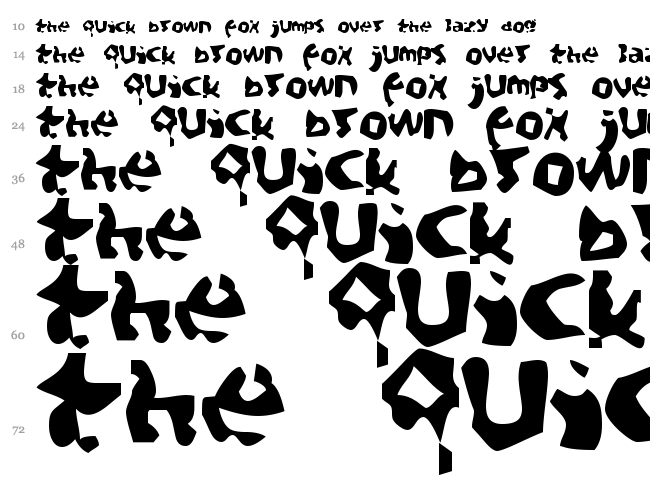 10 the quick brown fox jumps over the lazy dog
14 the quick brown fox jumps over the laz
18 the quick brown fox jumps ove
24 the quick brown fox ju
36 the quick brown
48 the quick b
60 the quick
72 the quic